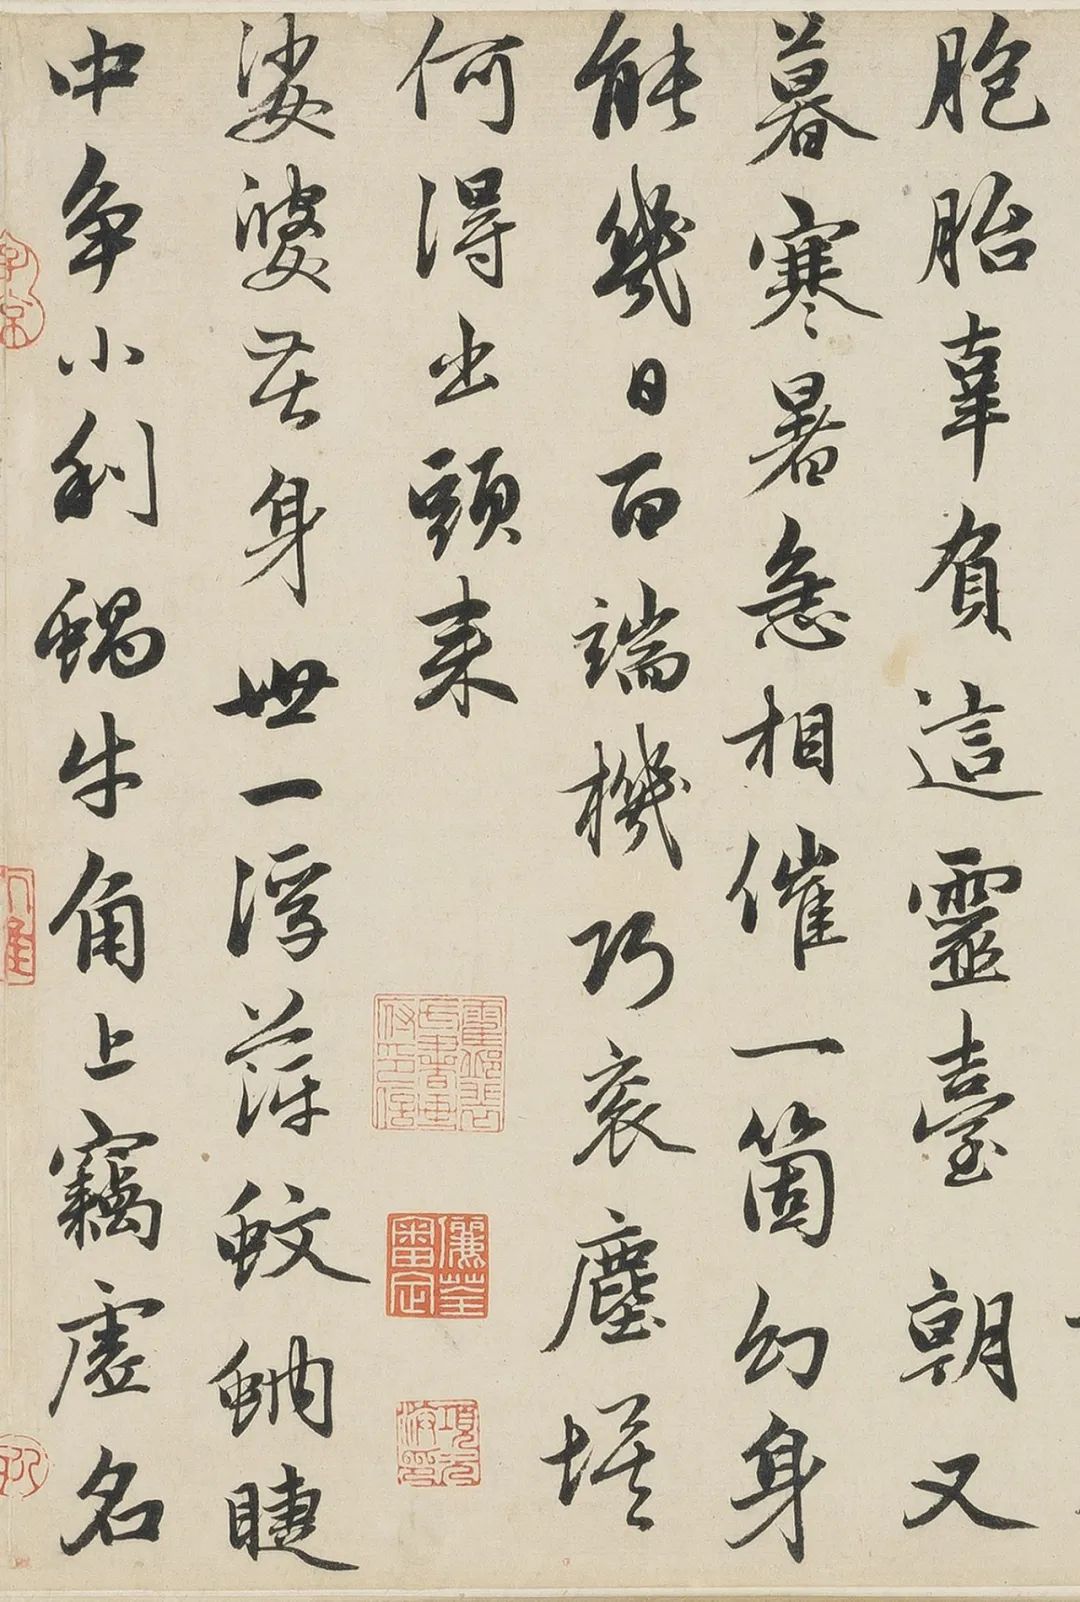 胞胎辜負這靈臺朝又
暮寒暑急相催一箇幻身
能幾日百端機巧衮塵埃
何得出頭来
娑婆苦身世一浮萍蚊蚋睫
中爭小利蝸牛角上竊虛名